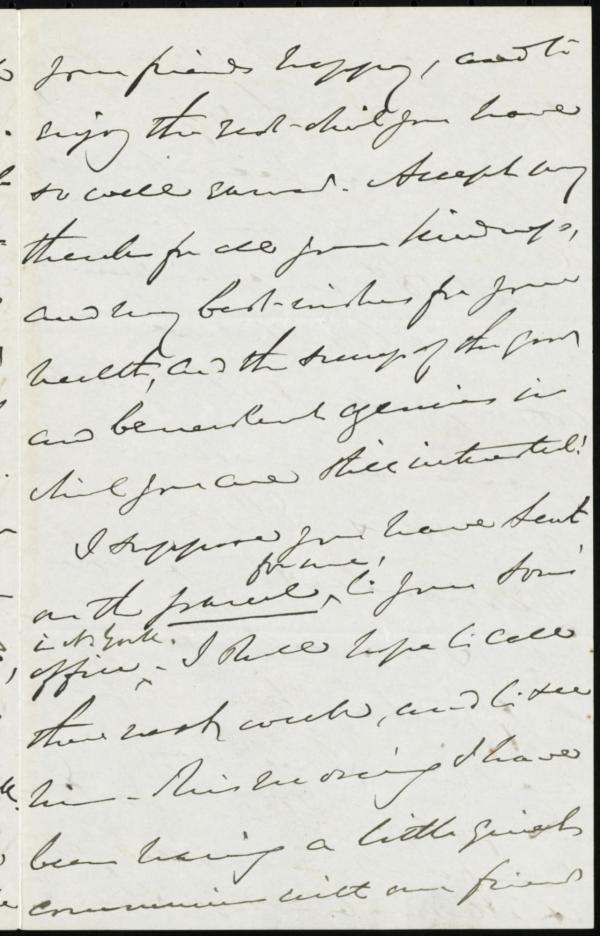 your friends happy, and to
enjoy the rest which you have
so well earned. Accept my
thanks for all your kindness,
and my best wishes for your
health, and the success of the good
and benevolent genius in
which you are still interested!
I suppose you have sent
for me!
on the parcel, to your son's
in N. York.
office - I shall hope to call
there next week, and to see
him - This morning I have
been having a little quiet
communion with our friend